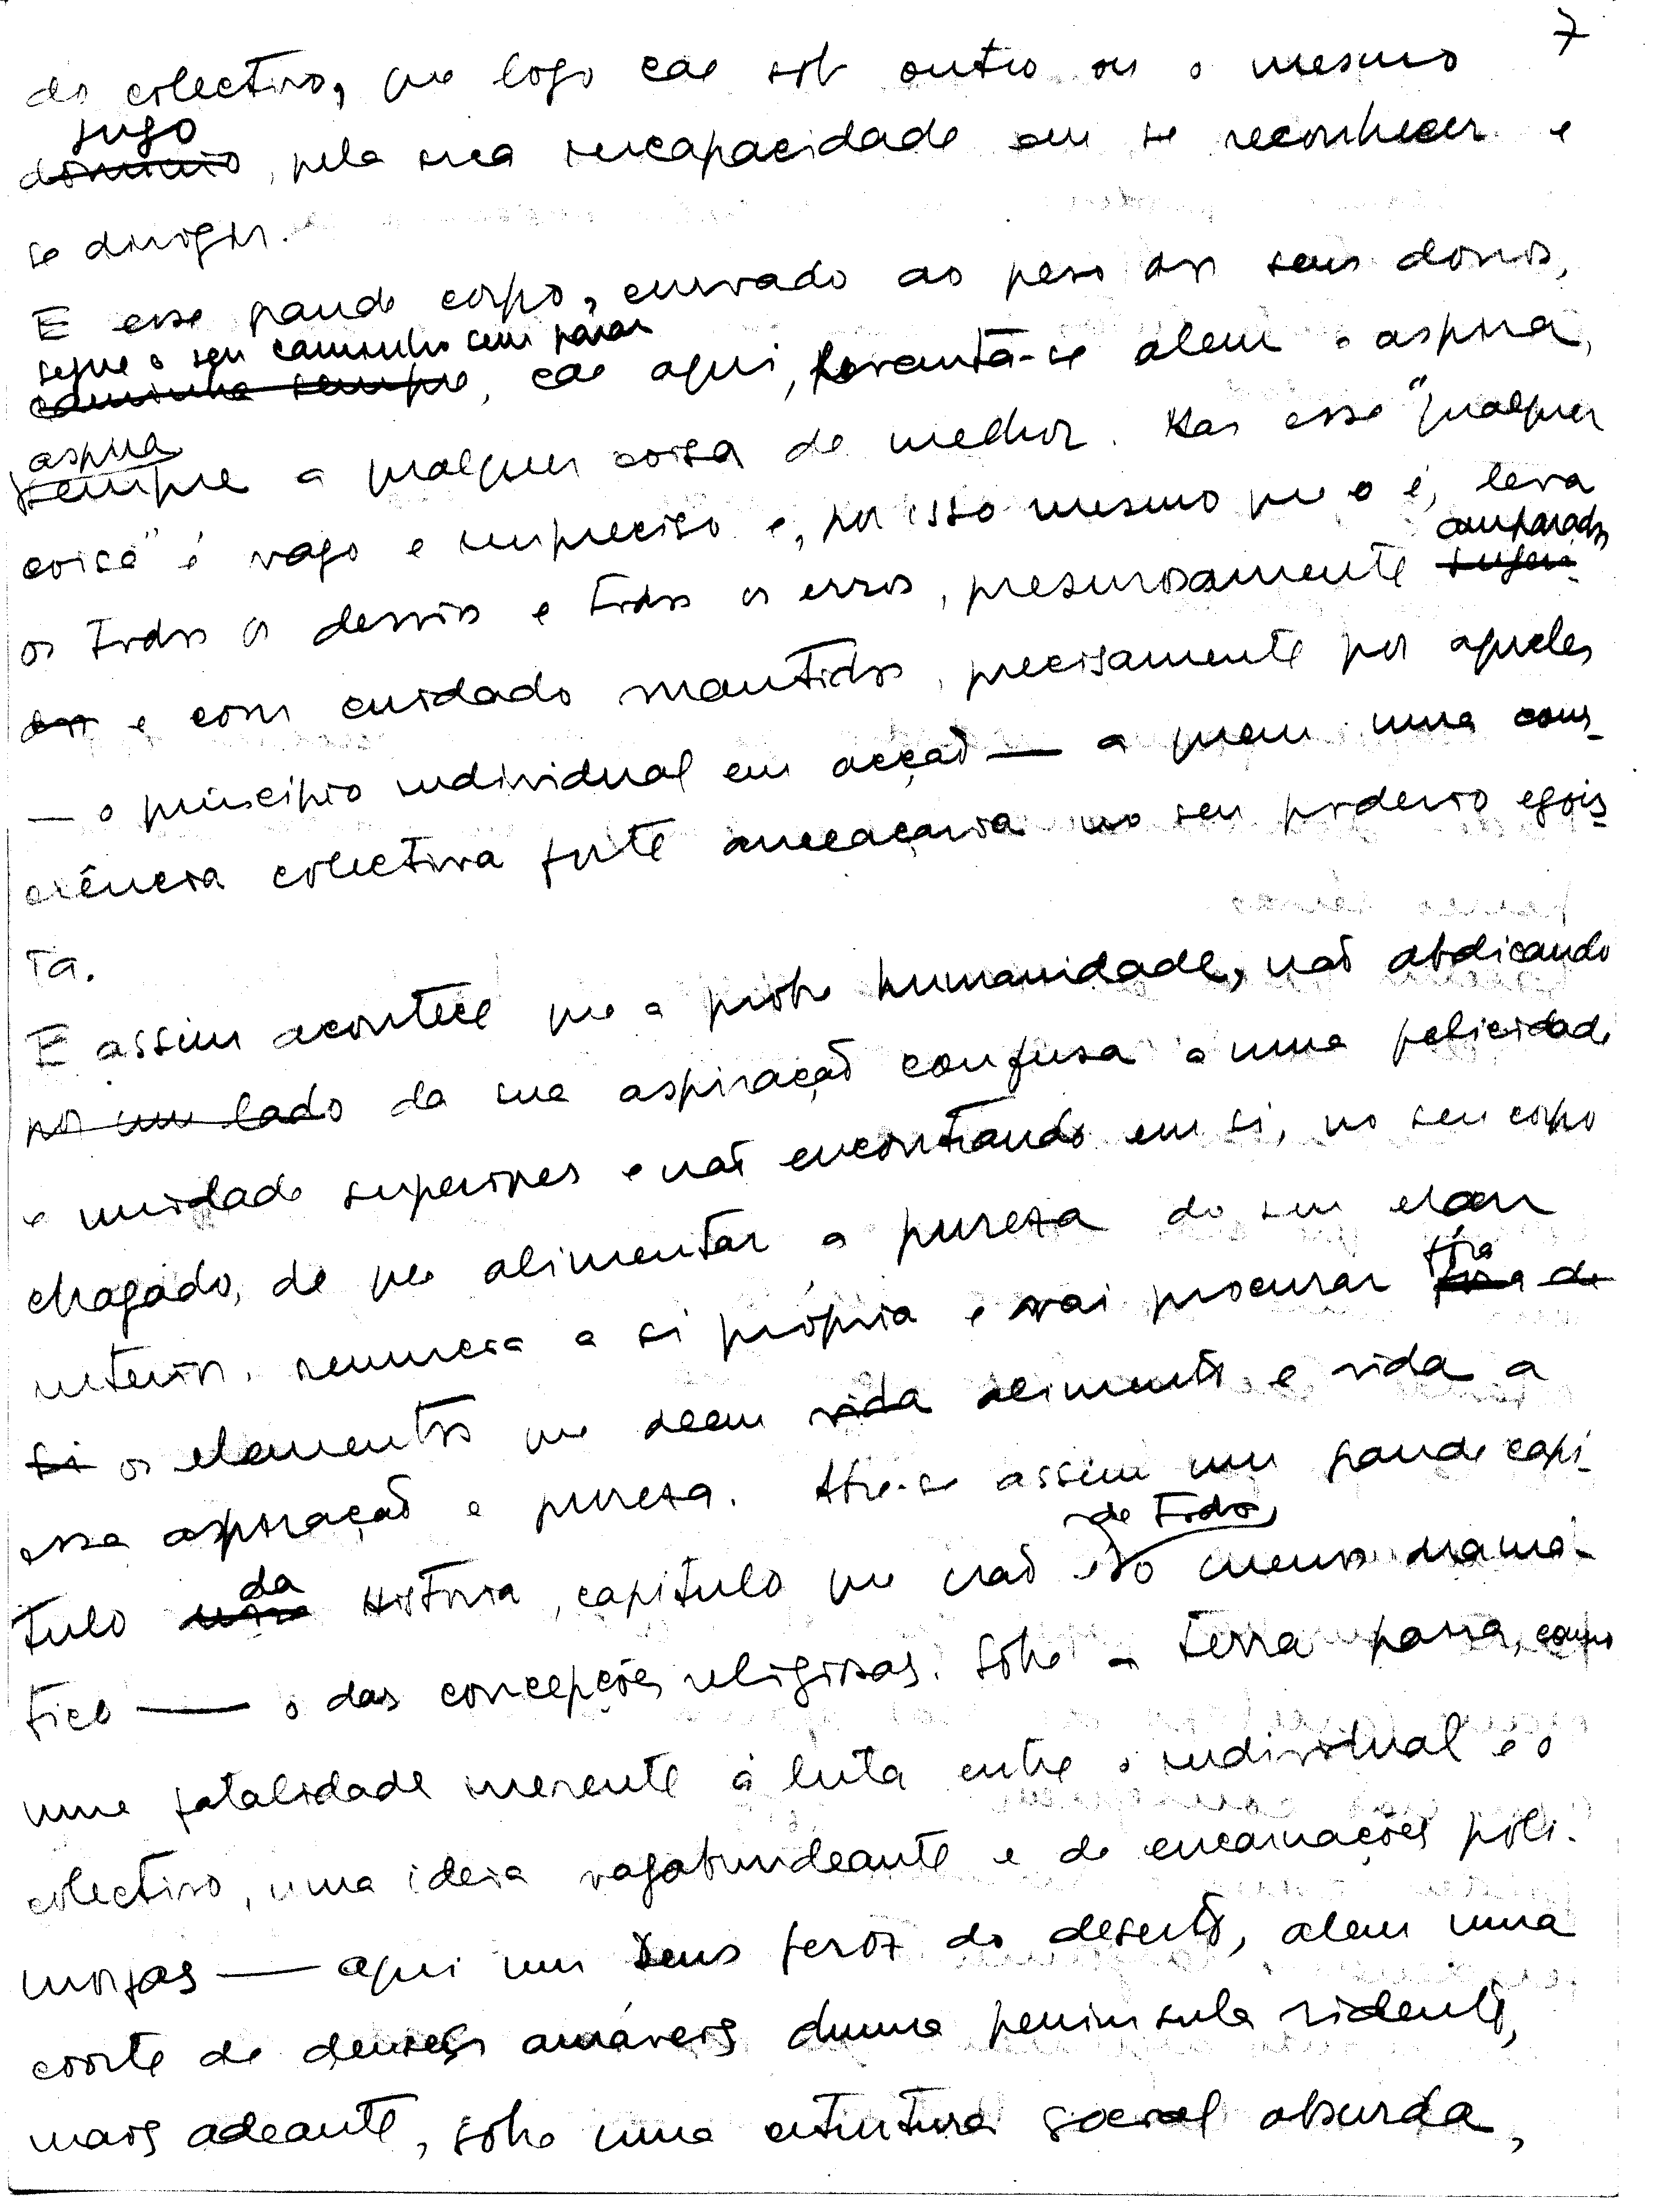 7
do colectivo, que logo cae sob outro ou o mesmo
jugo
dominio, pela sua incapacidade em se reconhecer e
se dirigir.
E esse grande corpo, curvado ao peso dos seus donos,
segue o seu caminho sem parar
caminha sempre, cae aqui, levanta-se alem e aspira,
aspira
sempre a qualquer coisa de melhor. Mas esse "qualquer
coisa" é vago e impreciso e, por isso mesmo que o é, leva
amparados
os todos os desvios e todos os erros, pressurosamente sugeri-
dos e com cuidado mantidos, precisamente por aqueles
— o principio individual em acção — a quem uma cons-
ciência colectiva forte ameaçaria no seu poderio egois-
ta.
E assim acontece que a pobre humanidade, não abdicando
por um lado da sua aspiração confusa a uma felicidade
e unidade superiores e não encontrando em si, no seu corpo
chagado, de que alimentar a pureza do seu elan
fóra
interior, renuncia a si própria e vai procurar fora de
si os elementos que deem vida alimento e vida a
essa aspiração e pureza. Abre-se assim um grande capi-
de todos
da
tulo História, capitulo que não é o menos dramá-
tico — o das concepções religiosas. Sobre a terra passa, como
uma fatalidade inerente á luta entre o individual e o
colectivo, uma ideia vagabundeante e de encarnações poli-
morfas — aqui um Deus feroz do deserto, alem uma
coorte de deuses amáveis duma peninsula ridente,
mais adeante, sobre uma estrutura social absurda,